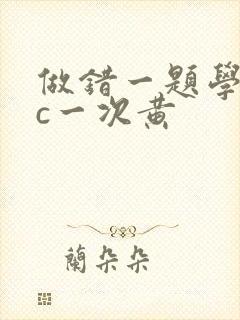 做錯一題學
c一次黃
蘭朵朵